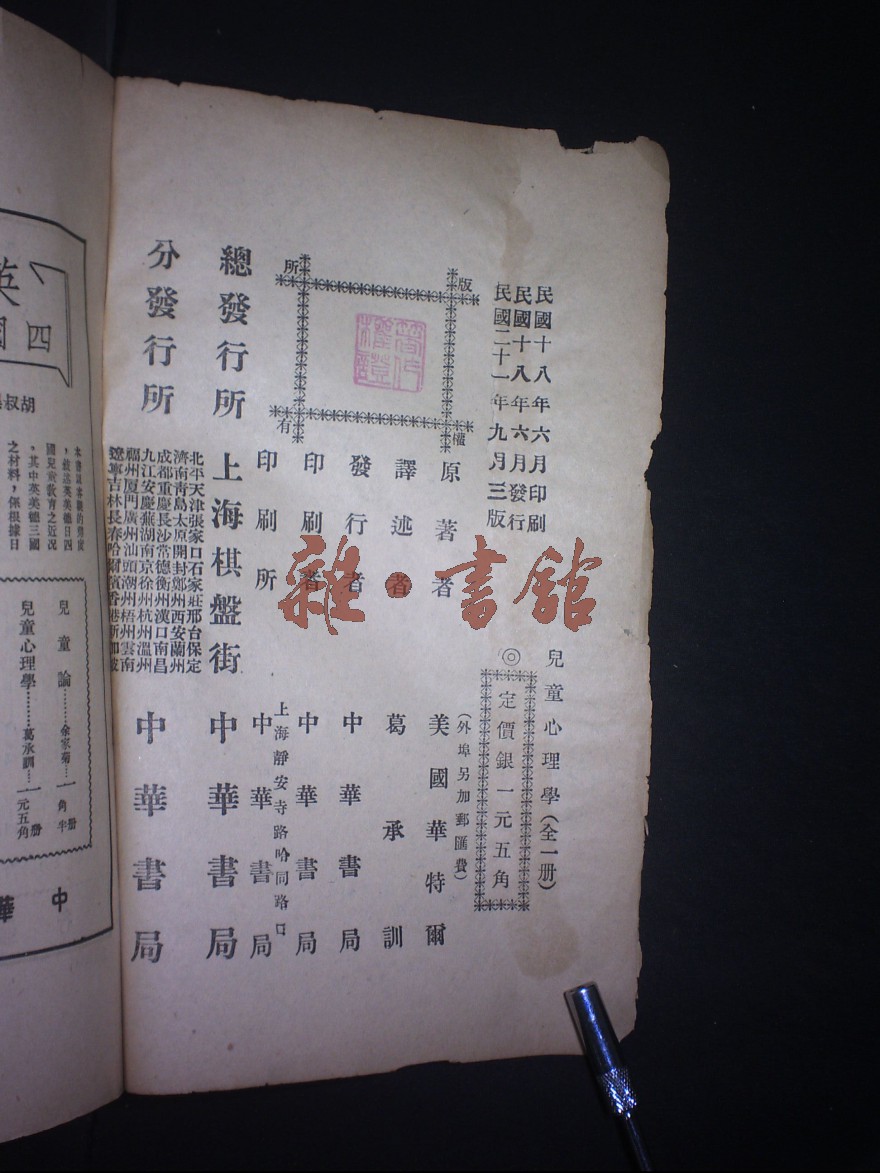 民國十八年六月印刷
民國十八年六月發行
民國二十一年九月三版
兒童心理學(全一册)
◎定價銀一元五角
(外埠另加郵匯費)
版權所有
著作權證
原著者 美國華特爾
譯述者 葛承訓
發行者 中華書局
印刷者 中華書局
上海靜安寺路哈同路口
印刷所 中華書局
總發行所 上海棋盤街 中華書局
分發行所
北平天津張家口石家莊邢台保定
濟南青島太原開封鄭州西安蘭州
成都重慶長沙常德衡州漢口南昌
九江安慶蕪湖南京徐州杭州溫州
福州厦門廣州汕頭潮州梧州雲南
遼寧吉林長春哈爾濱香港新加坡
中華書局
雜·書館
英
四
胡叔
本書以客觀的態度
，敍述英美德日四
國兒童教育之近況
，其中英美德三國
之材料，係根據日
兒童論………余家菊…一册 一角半
兒童心理學………葛承訓…一册 一元五角
中華